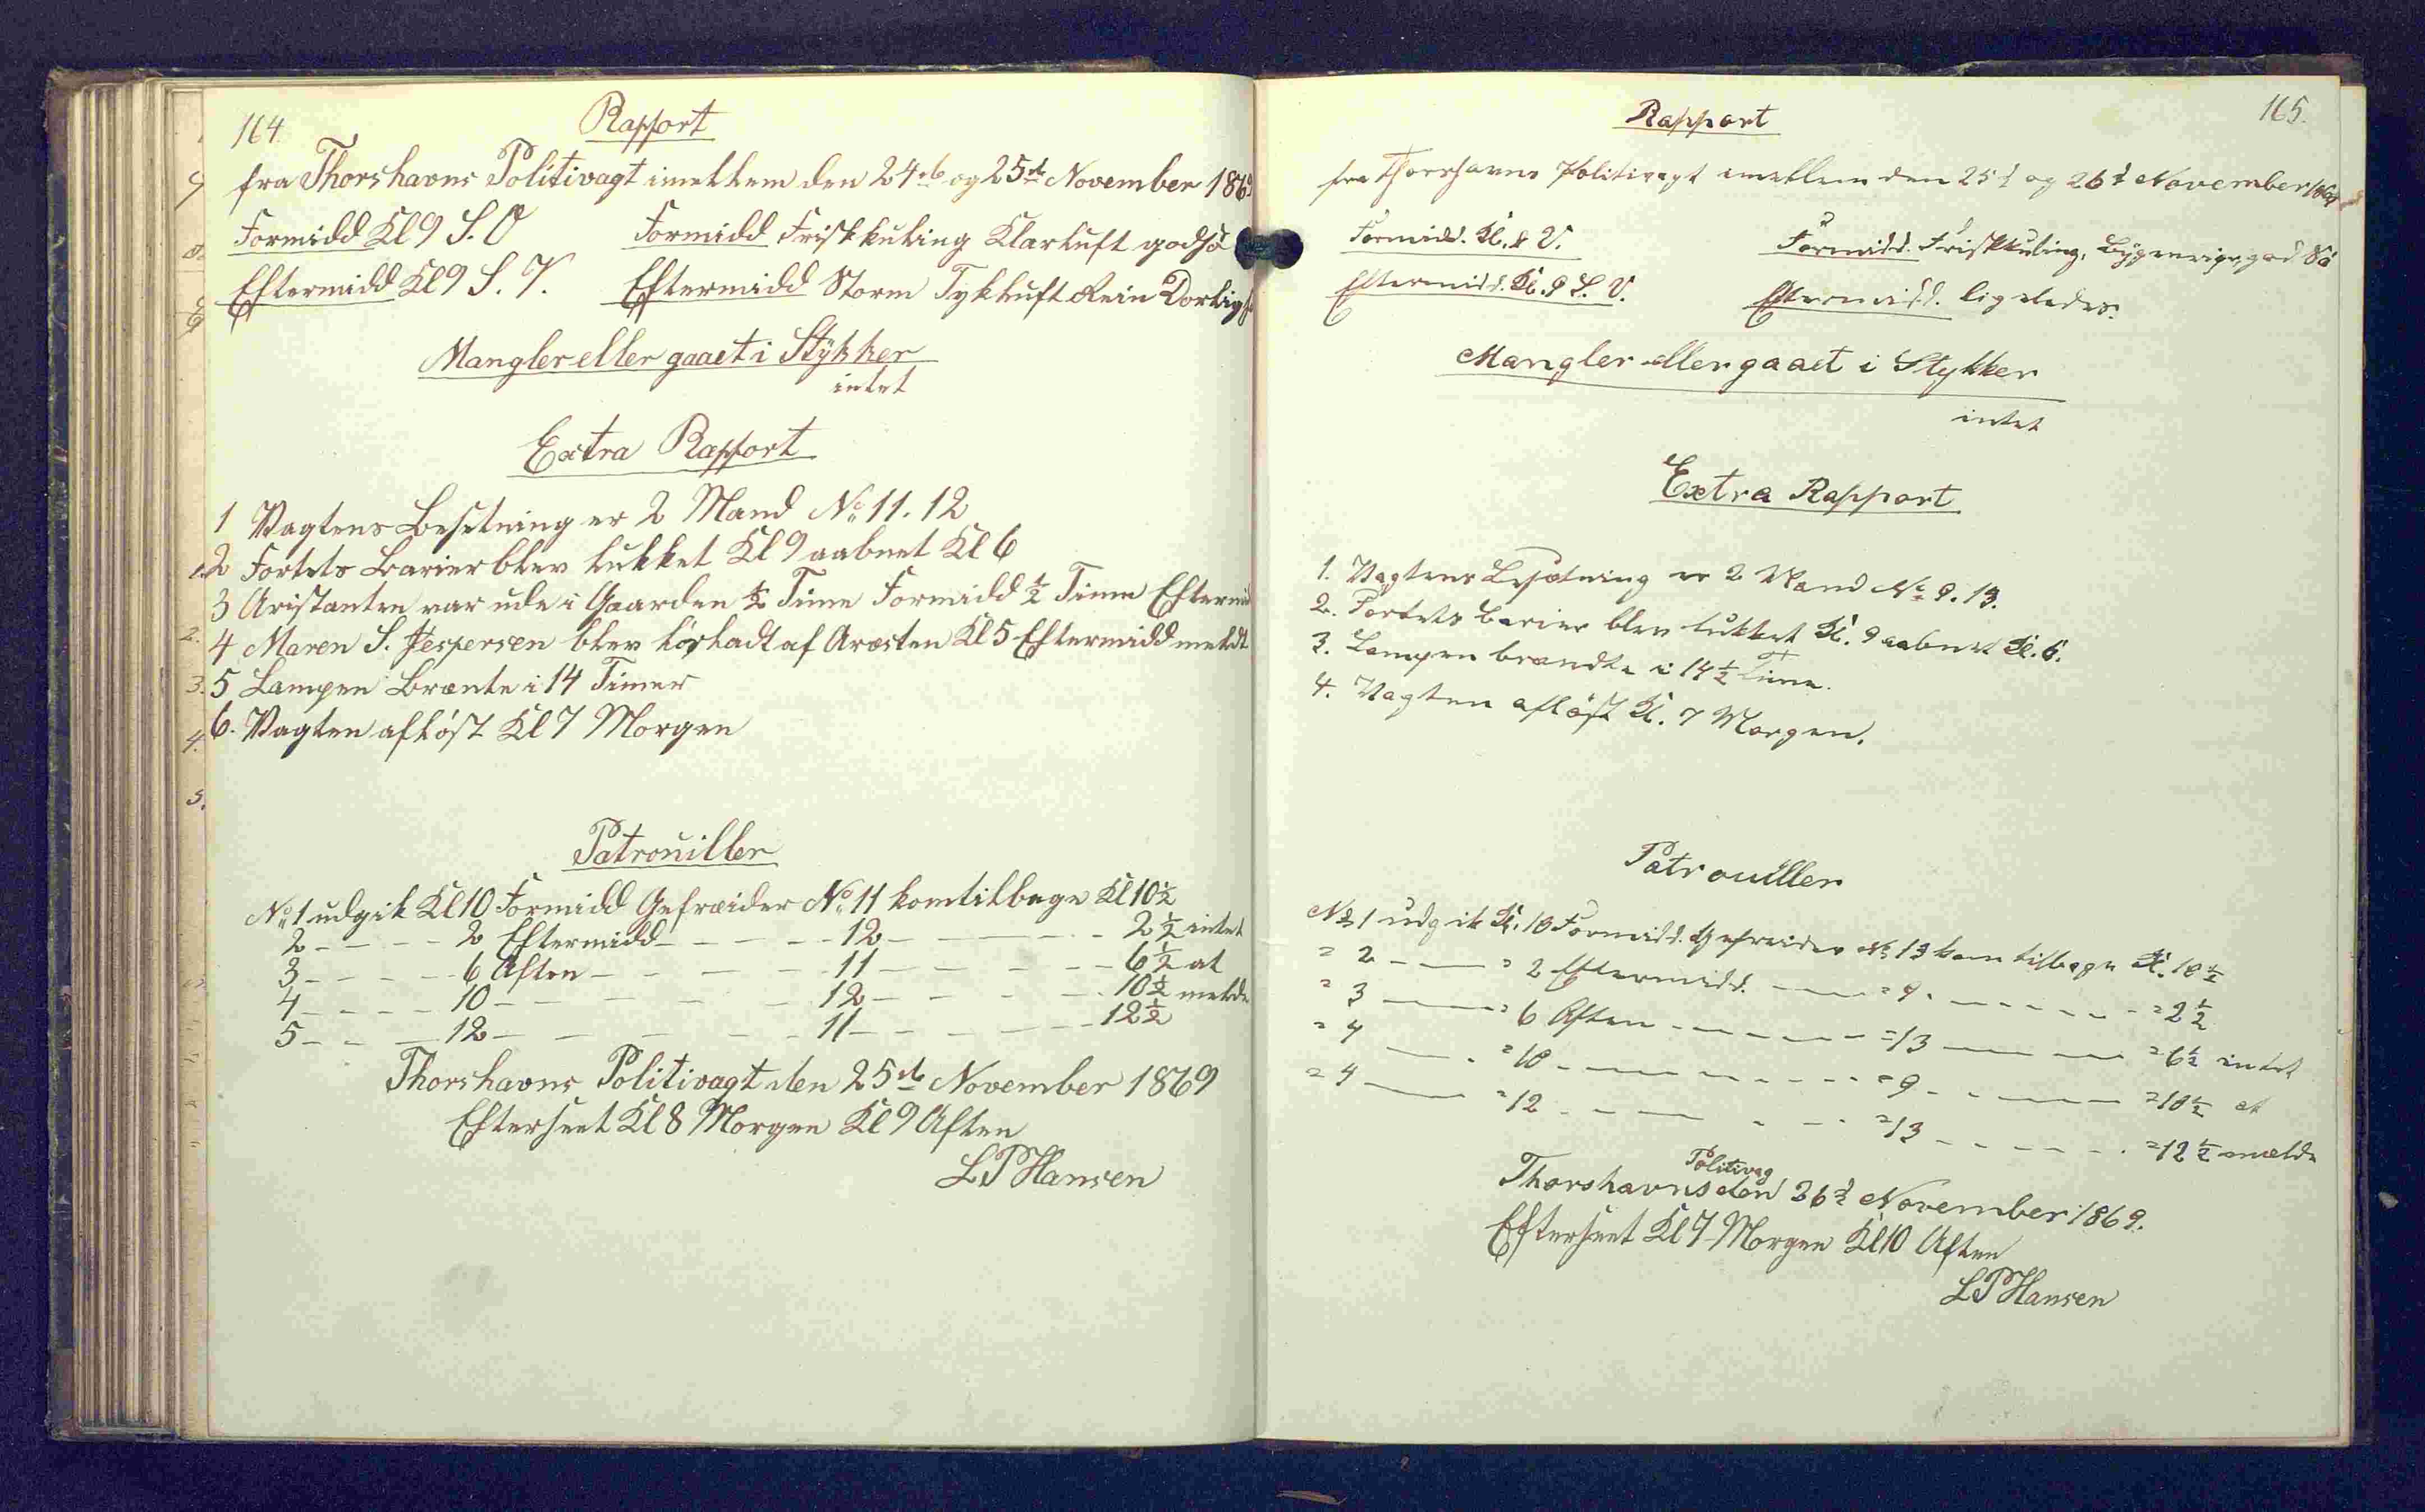 164.
Rapport
fra Thorshavns Politivagt imellem den 24de og 25de November 1869
Formidd Kl 9 S. O Formidd Friskkuling Klarluft godsö
Eftermidd Kl 9 S. V. Eftermidd Storm Tykluft Rein
Mangler eller gaaet i Stÿkker
intet
Extra Rapport
1 Vagtens Besetning er 2 Mand No 11. 12
2 Fortets Barier blev lukket Kl 9 aabnet Kl 6
3 Aristanten var ude i Gaarden ½ Time Formidd ½ Time Eftermid
4 Maren S. Jespersen blev løsladt af Aræsten Kl 5 Eftermidd meldt
5 Lampen Brænte i 14 Timer
6. Vagten afløst Kl 7 Morgen
Patrouiller
No 1 udgik Kl 10 Formidd Gefræider No 11 kom tilbage Kl 10½
2 - - - - 2 Eftermidd - - - - 12 - - - - 2½ intet
3 - - - - 6 Aften - - - - 11 - - - - 6½ at
4 - - - - 10 - - - - 12 - - - - 10½ melde
5 - - - - 12 - - - - 11 - - - - 12½
Thorshavns Politivagt den 25de November 1869
Efterseet Kl 8 Morgen Kl 9 Aften
L P Hansen
165.
Rapport
fra Thorshavns Politivagt imellem den 25d og 26d November 1869
Formidd. Kl. 8 V. Formidd. Friskkuling, Bÿgeveir, god Sö
Eftermidd. Kl. 9 S. V. Eftermidd. ligeledes.
Mangler eller gaaet i Stykker
intet
Extra Rapport
1. Vagtens Besætning er 2 Mand No 9. 13.
2. Fortets Barier blev lukket Kl. 9 aabnet Kl. 6.
3. Lampen brændte i 14½ Time.
4. Vagten afløst Kl. 7 Morgen.
Patrouiller
No 1 udgik Kl. 10 Formidd. Gefreider No 13 kom tilbage Kl. 10½
= 2 - - - = 2 Eftermidd. - - - = 9. - - - - = 2½
= 3 - - - = 6 Aften - - - - = 13 - - - = 6½ intet
= 4 - - - = 10 - - - - = 9 - - - - = 10½ at
= 4 - - - = 12 - - - - = 13 - - - - = 12½ mælde
Politivag
Thorshavns den 26d November 1869.
Efterseet Kl 7 Morgen Kl 10 Aften
L P Hansen